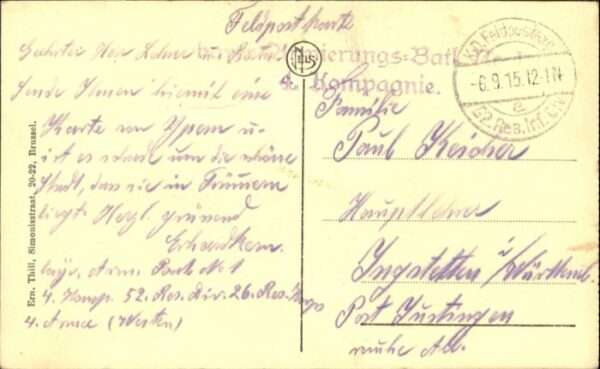 Feldpostkarte
Geehrter Herr Lehrer u.
Sende Ihnen hiermit eine
Karte von Ypern u.
ist es schade um die schöne
Stadt, das sie in Trümmern
liegt. Herzl. grüssend
Erhard Kern
bayr. Arm. Batl. No 1
4. Komp. 52. Res. Div. 26. Res. Korps
4. Armee (Westen)
Pionierungs-Batl. No. 1
4. Kompagnie.
K.D. Feldpostexp.
-6.9.15.12-1N
a
52. Res. Inf. Div.
NELS
Familie
Paul Keicher
Hauptlehrer
Ingstetten i/Württmb.
Post Justingen
rauhe Alb.
Ern. Thill, Simonisstraat, 20-22, Brussel.